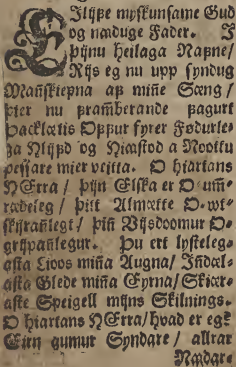 EIlijfe myskunsame Gud
og næduge Fader. I
þijnu heilaga Nafne/
Rijs eg nu upp syndug
Mañskiepna af miñe Sæng/
þter nu framberande fagurt
Þacklætis Offur fyrer Fødurle-
ga Hlijfd og Hiastod a Noottu
þessare mier veitta. O hiartans
HErra/ þijn Elska er O-um-
rædeleg/ þitt Almætte O-wt-
skijrañlegt/ þiñ Vijsdoomur O-
grijpañlegur. Þu ert lysteleg-
asta Lioos miña Augna/ Indæl-
asta Glede miña Eyrna/ Skiær-
aste Speigell mijns Skilnings.
O hiartans HErra/ hvad er eg?
Eirn aumur Syndare/ allrar
Nædar-